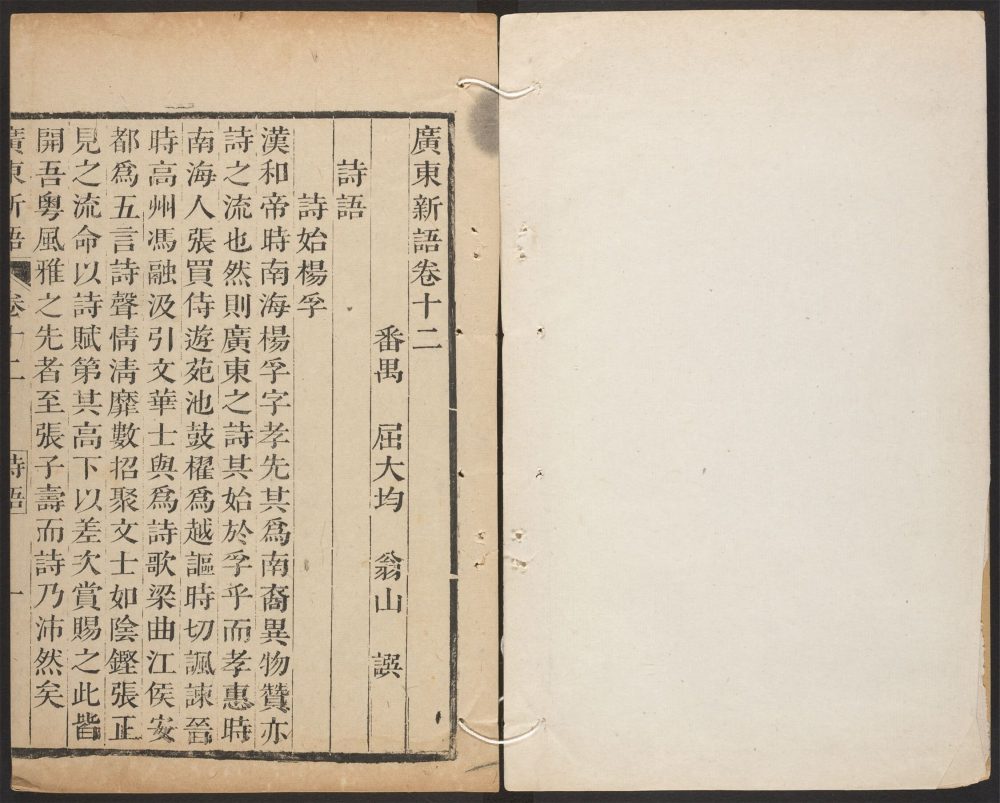 廣東新語卷十二
番禺 屈大均 翁山 譔
詩語
詩始楊孚
漢和帝時南海楊孚字孝先其爲南裔異物贊亦
詩之流也然則廣東之詩其始於孚乎而孝惠時
南海人張買侍遊苑池鼓櫂爲越謳時切諷諫晉
時高州馮融汲引文華士與爲詩歌梁曲江侯安
都爲五言詩聲情淸靡數招聚文士如陰鏗張正
見之流命以詩賦第其高下以差次賞賜之此皆
開吾粵風雅之先者至張子壽而詩乃沛然矣
廣東新語 卷十二 詩語 一